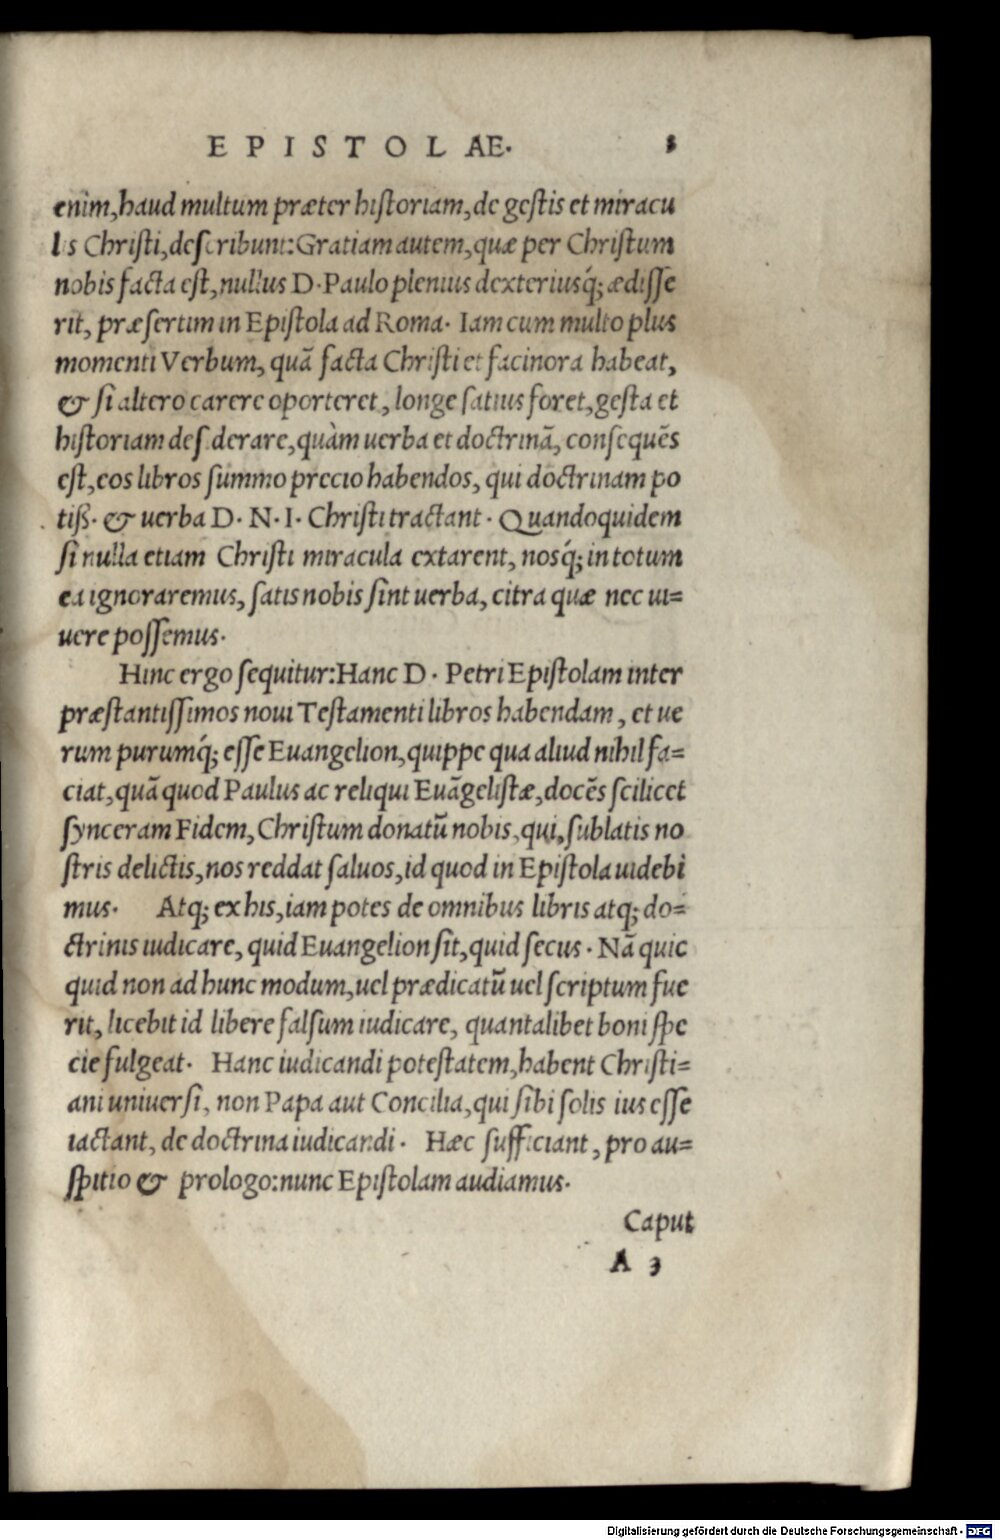 EPISTOLAE. 3
enim, haud multum præter historiam, de gestis et miracu
lis Christi, describunt: Gratiam autem, quæ per Christum
nobis facta est, nullus D. Paulo plenius dexteriusq́; ædisse
rit, præsertim in Epistola ad Roma. Iam cum multo plus
momenti Verbum, quã facta Christi et facinora habeat,
& si altero carere oporteret, longe satius foret, gesta et
historiam desiderare, quàm uerba et doctrinã, consequẽs
est, eos libros summo precio habendos, qui doctrinam po
tiß. & uerba D. N. I. Christi tractant. Quandoquidem
si nulla etiam Christi miracula extarent, nosq́; in totum
ea ignoraremus, satis nobis sint uerba, citra quæ nec ui=
uere possemus.
Hinc ergo sequitur: Hanc D. Petri Epistolam inter
præstantissimos noui Testamenti libros habendam, et ue
rum purumq́; esse Euangelion, quippe qua aliud nihil fa=
ciat, quã quod Paulus ac reliqui Euãgelistæ, docẽs scilicet
synceram Fidem, Christum donatũ nobis, qui, sublatis no
stris delictis, nos reddat saluos, id quod in Epistola uidebi
mus. Atq; ex his, iam potes de omnibus libris atq; do=
ctrinis iudicare, quid Euangelion sit, quid secus. Nã quic
quid non ad hunc modum, uel prædicatũ uel scriptum fue
rit, licebit id libere falsum iudicare, quantalibet boni spe
cie fulgeat. Hanc iudicandi potestatem, habent Christi=
ani uniuersi, non Papa aut Concilia, qui sibi solis ius esse
iactant, de doctrina iudicandi. Hæc sufficiant, pro au=
spitio & prologo: nunc Epistolam audiamus.
Caput
A 3
Digitalisierung gefördert durch die Deutsche Forschungsgemeinschaft - DFG